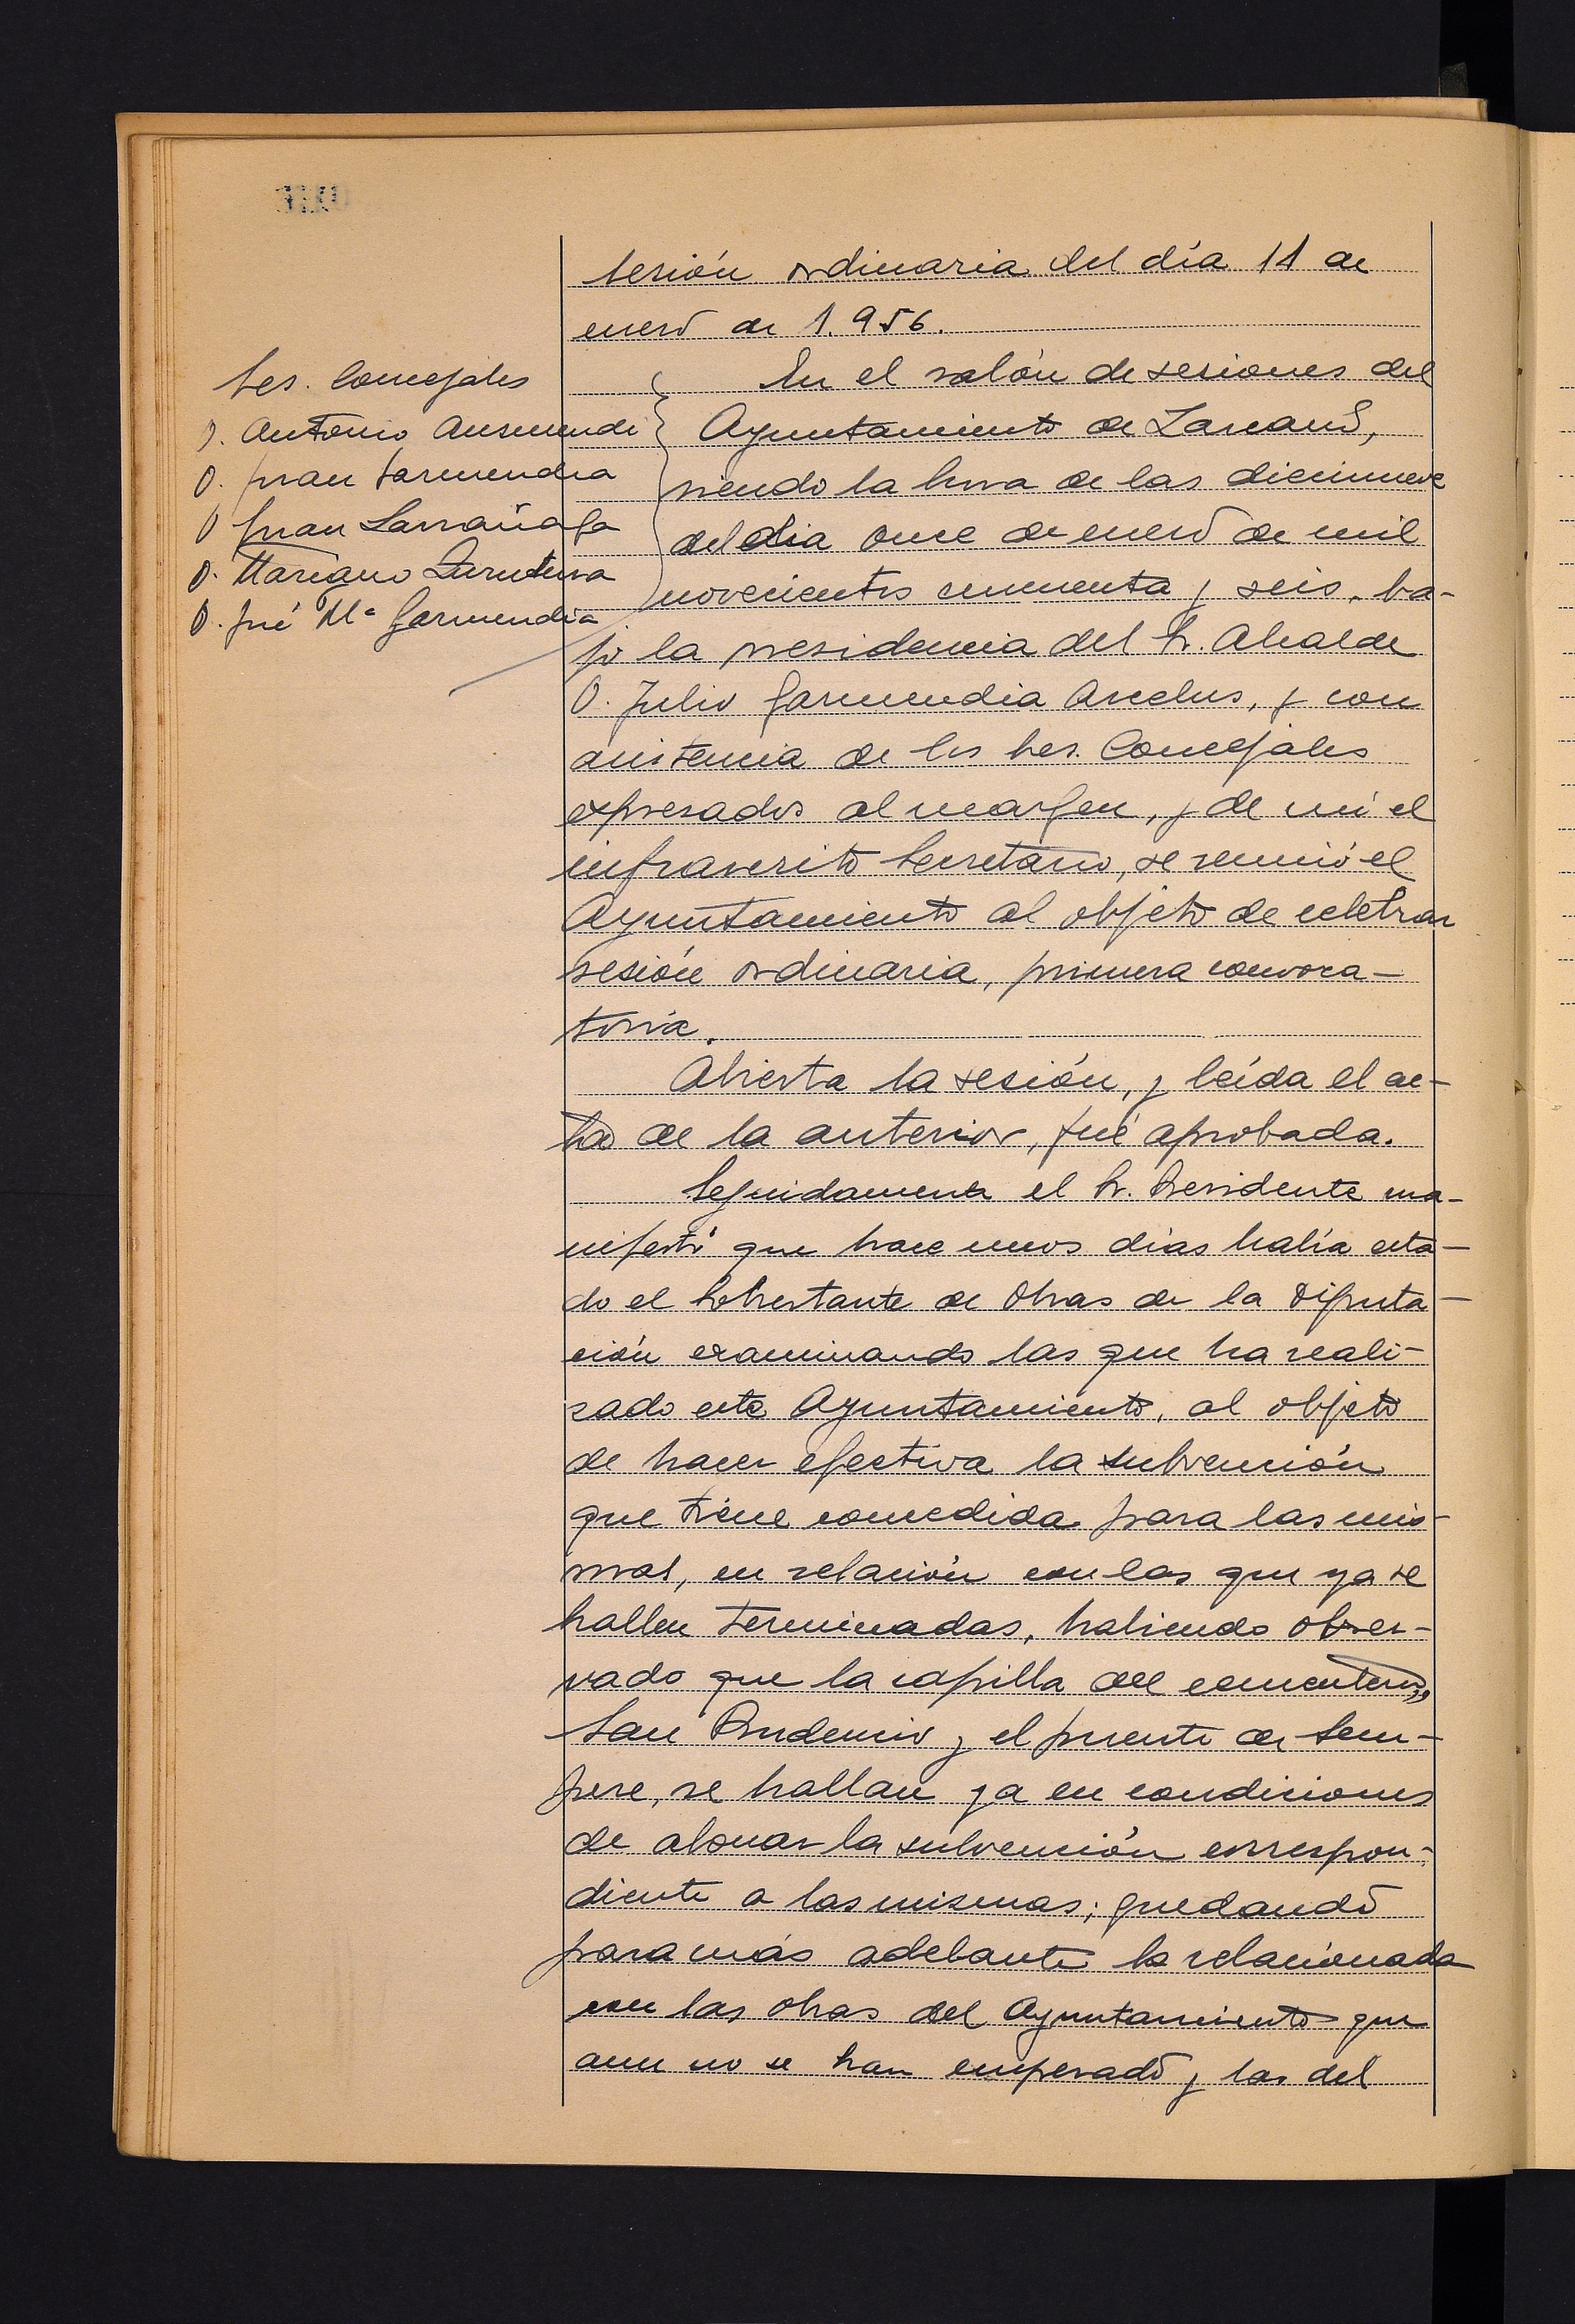 Sesión ordinaria del día 11 de
enero de 1.956.
Sres. Concejales
D. Antonio Ausmendi
D. Juan Garmendia
D. Juan Larrañaga
D. Mariano Zurutuza
D. José Mª Garmendia
En el salón de sesiones del
Ayuntamiento de Lazcano,
siendo la hora de las diecinueve
del día once de enero de mil
novecientos cincuenta y seis, ba-
jo la presidencia del Sr. Alcalde
D. Julio Garmendia Arcelus, y con
asistencia de los Sres. Concejales
expresados al margen, y de mí el
infrascrito Secretario, se reunió el
Ayuntamiento al objeto de celebrar
sesión ordinaria, primera convoca-
toria.
Abierta la sesión, y leída el ac-
ta de la anterior, fué aprobada.
Seguidamente el Sr. Presidente ma-
nifestó que hace unos días había esta-
do el Sobrestante de Obras de la Diputa-
ción examinando las que ha reali-
zado este Ayuntamiento, al objeto
de hacer efectiva la subvención
que tiene concedida para las mis-
mas, en relación con las que ya se
hallen terminadas, habiendo obser-
vado que la capilla del cementerio,
San Prudencio y el puente de Sem-
pere, se hallan ya en condiciones
de abonar la subvención correspon-
diente a las mismas; quedando
para más adelante la relacionada
con las obras del Ayuntamiento que
aun no se han empezado y las del